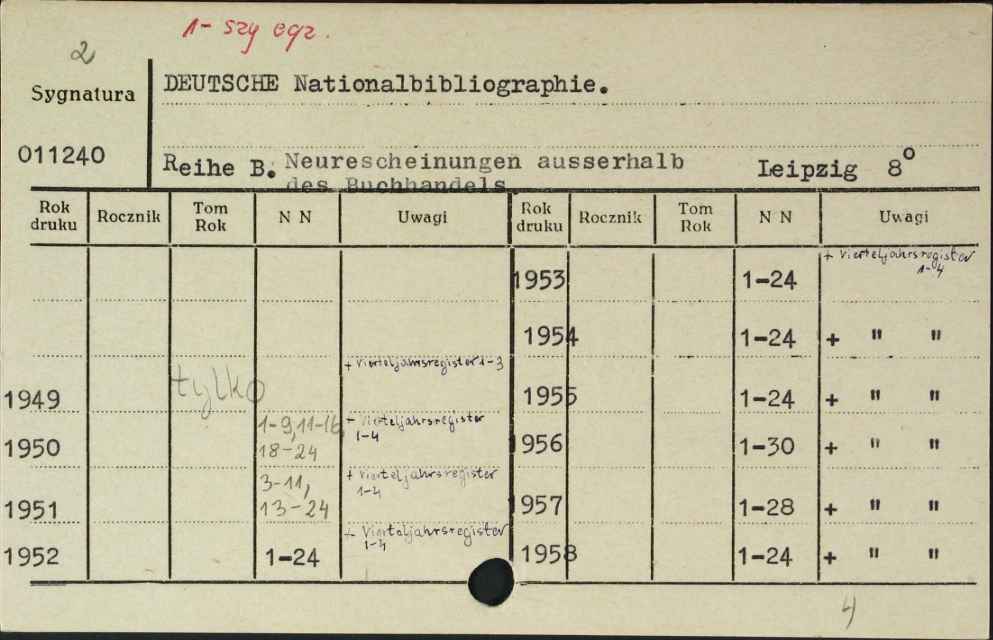 1- szy egz.
2
Sygnatura
DEUTSCHE Nationalbibliographie.
011240
Reihe B. Neurescheinungen ausserhalb
des Buchhandels
Leipzig 8°
Rok druku Rocznik Tom Rok N N Uwagi Rok druku Rocznik Tom Rok N N Uwagi
1953 1-24 + Vierteljahrsregister 1-4
1954 1-24 + " "
1949 tylko + Vierteljahrsregister 1-3 1955 1-24 + " "
1950 1-9, 11-16, 18-24 + Vierteljahrsregister 1-4 1956 1-30 + " "
1951 3-11, 13-24 + Vierteljahrsregister 1-4 1957 1-28 + " "
1952 1-24 + Vierteljahrsregister 1-4 1958 1-24 + " "
4